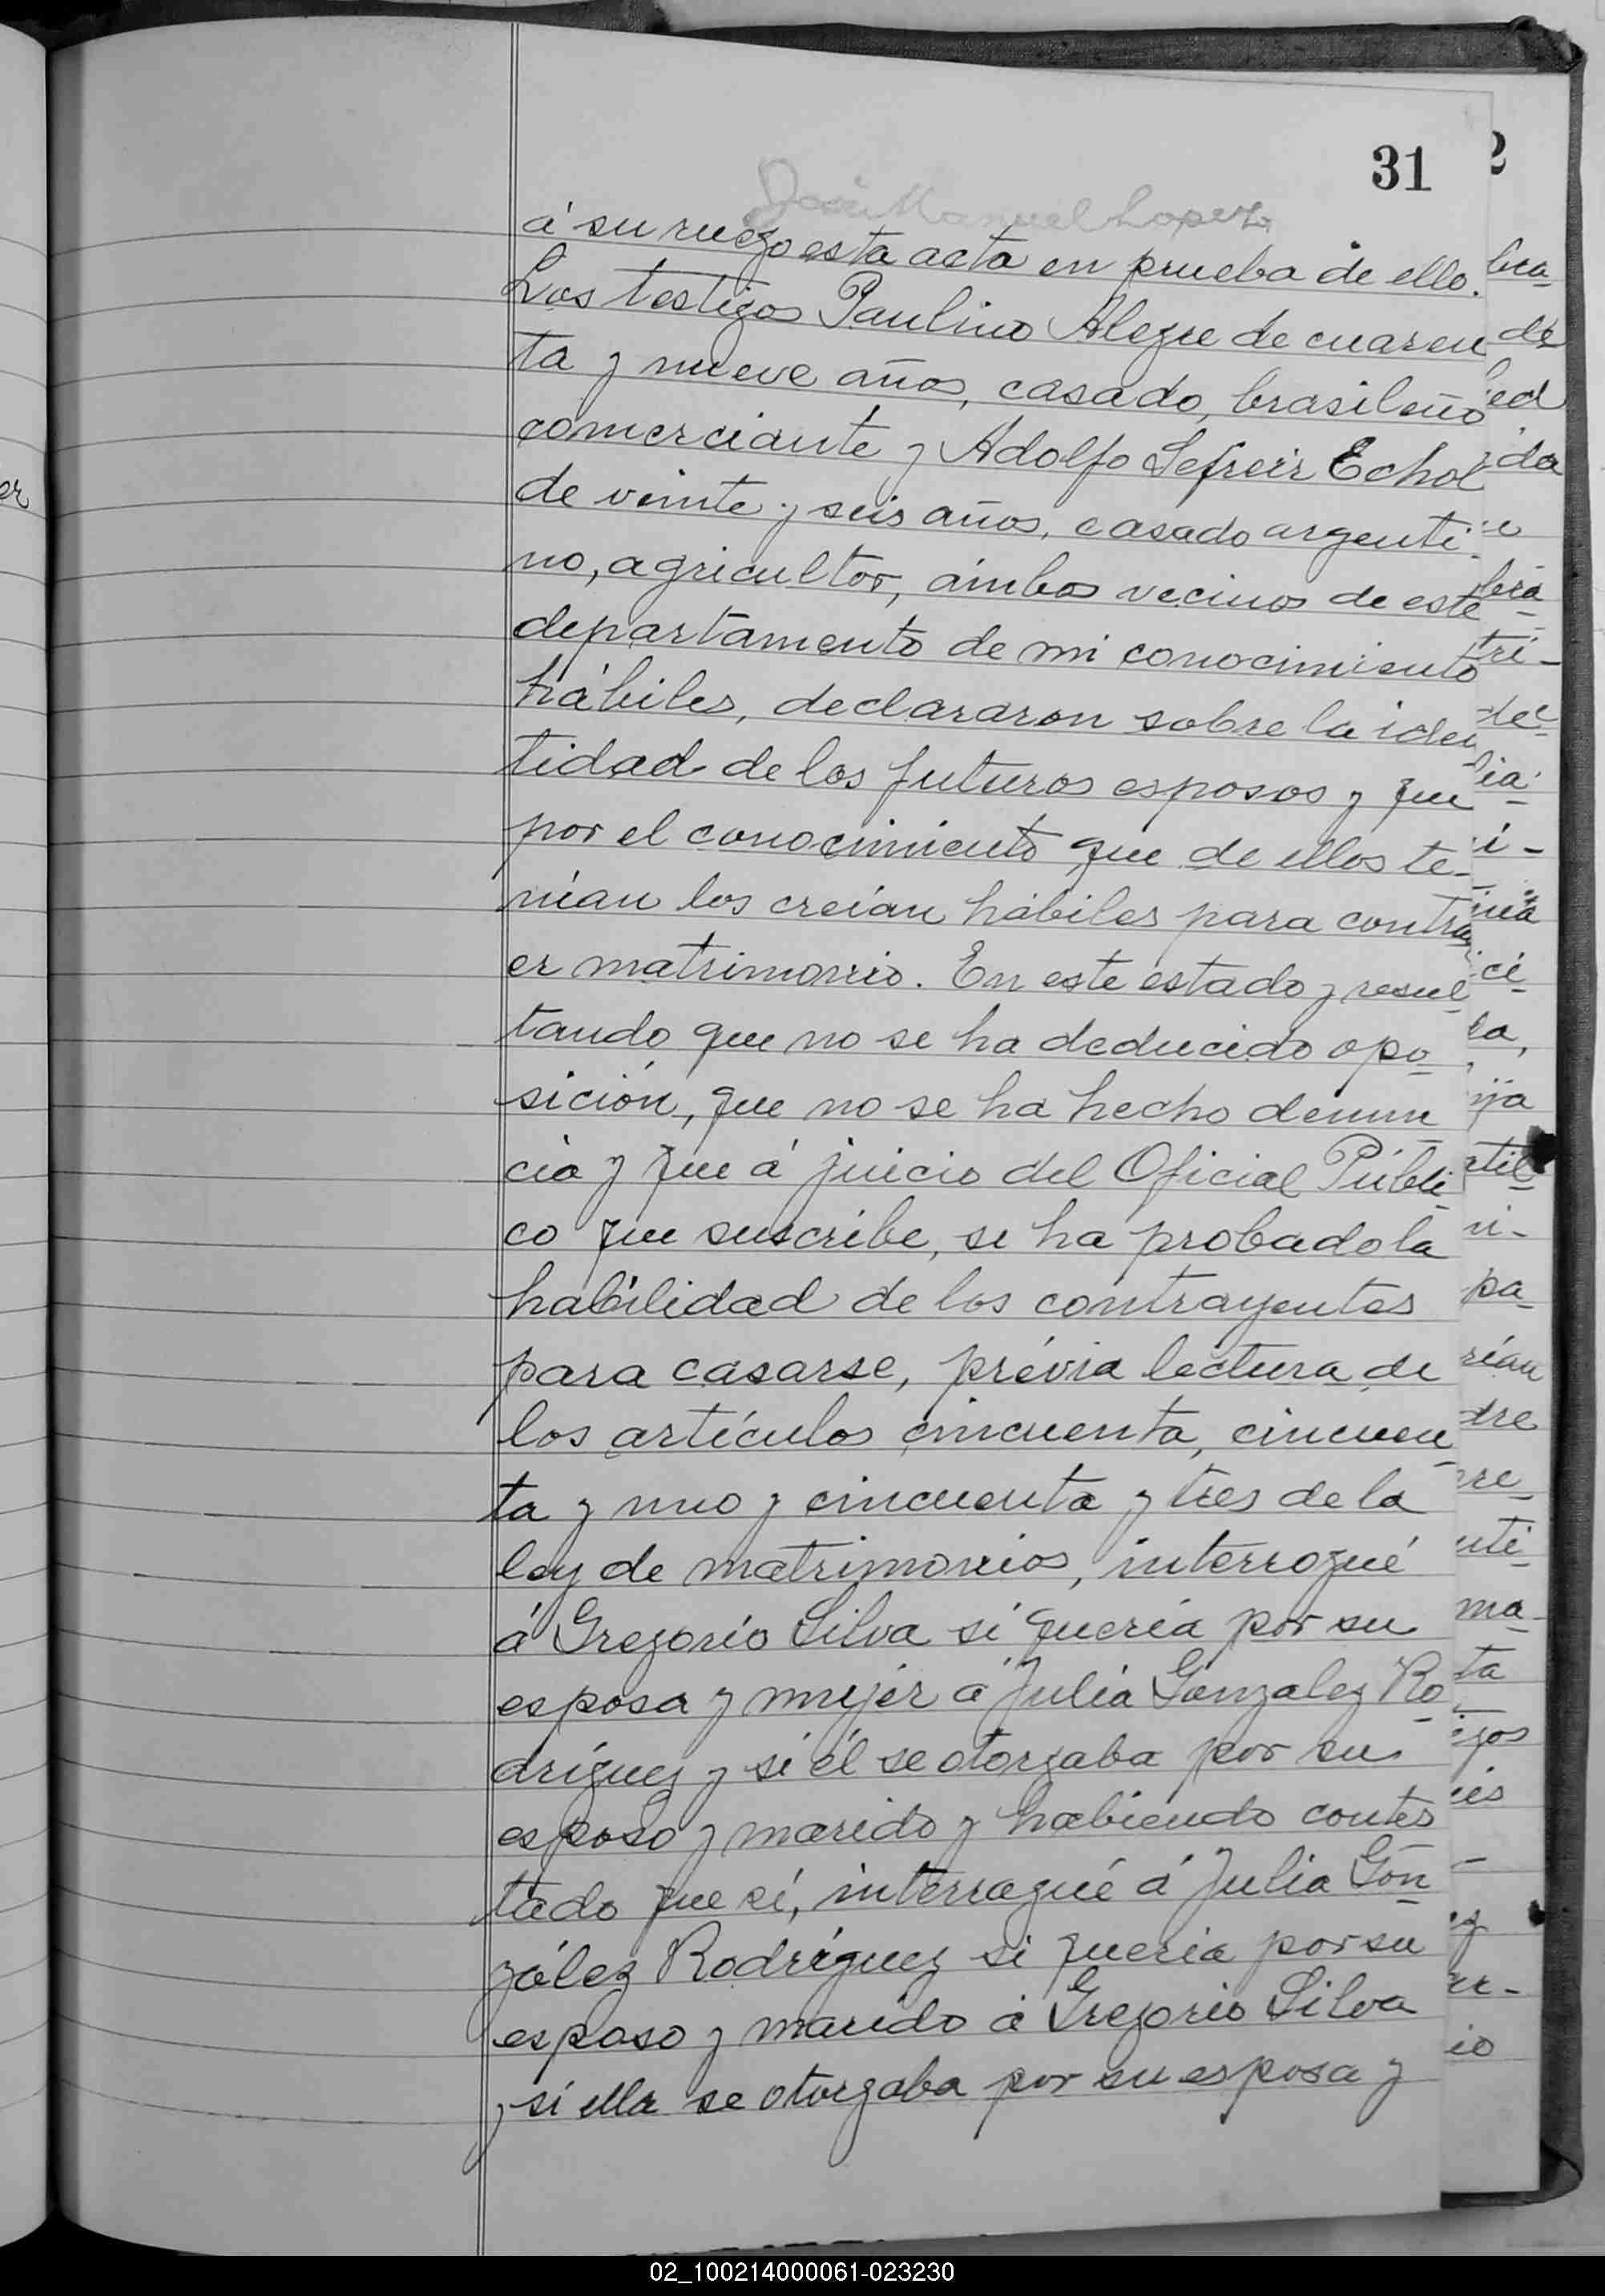 31
José Manuel Lopez
á su ruego esta acta en prueba de ello.
Los testigos Paulino Alegre de cuaren
ta y nueve años, casado, brasileño
comerciante y Adolfo Echol
de veinte y seis años, casado argenti-
no, agricultor, ámbos vecinos de este
departamento de mi conocimiento
hábiles, declararon sobre la iden
tidad de los futuros esposos y que
por el conocimiento que de ellos te-
nían los creían hábiles para contra
er matrimonio. En este estado y resul
tando que no se ha deducido opo
sición, que no se ha hecho denun
cia y que á juicio del Oficial Públi
co que suscribe, se ha probado la
habilidad de los contrayentes
para casarse, prévia lectura de
los artículos cincuenta, cincuen
ta y uno y cincuenta y tres de la
ley de matrimonios, interrogué
á Gregorio Silva si quería por su
esposa y mujer á Julia Gonzalez Ro
dríguez y si él se otorgaba por su
esposo y marido y habiendo contes
tado que sí, interrogué á Julia Gon
zález Rodríguez si quería por su
esposo y marido á Gregorio Silva
y si ella se otorgaba por su esposa y
02_100214000061-023230